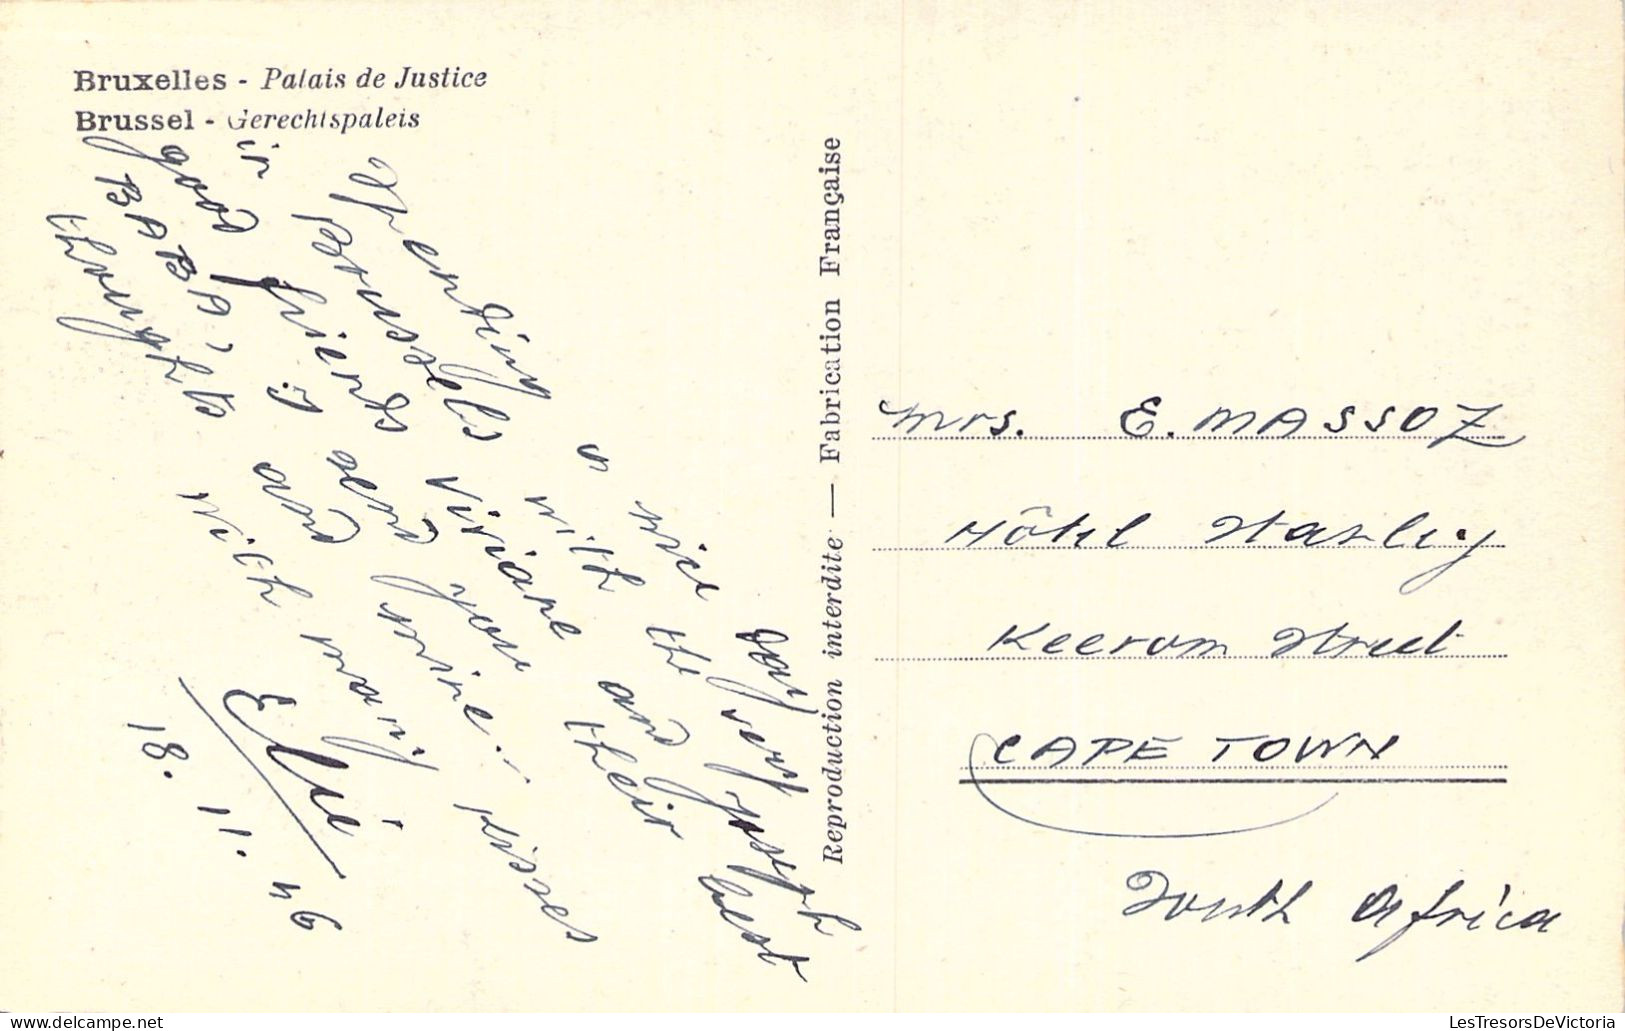 Bruxelles - Palais de Justice
Brussel - Gerechtspaleis
Spending a nice day very
in Brussels with the Joseph
good friends Viviane and
BABA, I send you their best
thoughts and mine. kisses
with many
Elli
18. 11. 46
Reproduction interdite — Fabrication Française
Mrs. E. MASSOZ
Hôtel Stanley
Keerom Street
CAPE TOWN
South Africa
LesTresorsDeVictoria.com